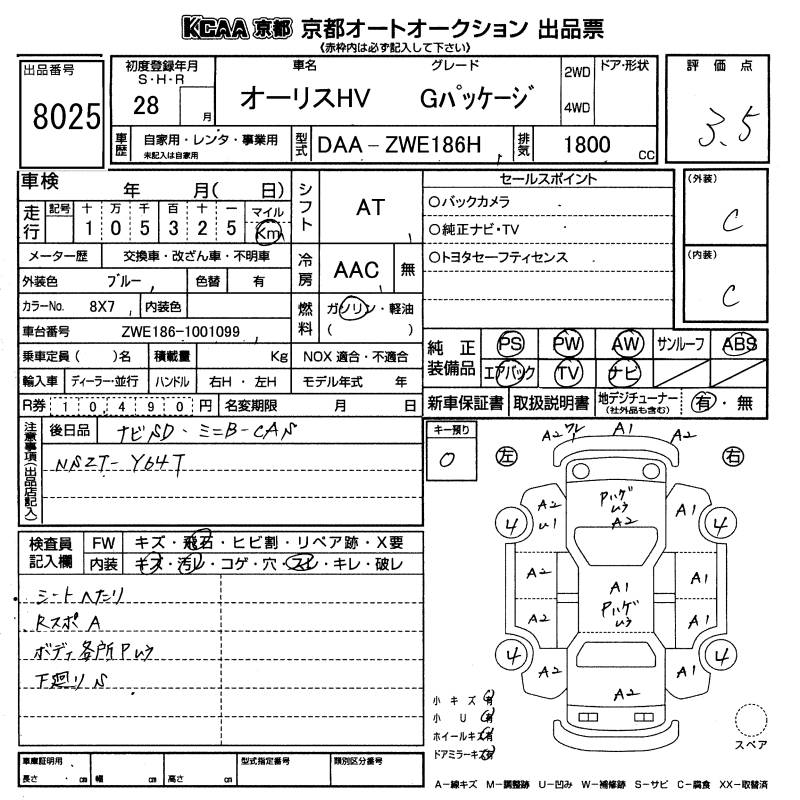 KCAA京都 京都オートオークション 出品票
《赤枠内は必ず記入して下さい》
出品番号
8025
初度登録年月
S・H・R
28 月
車名 グレード
オーリスHV Gパッケージ
2WD
4WD
ドア・形状
評価点
3.5
車歴 自家用・レンタ・事業用
未記入は自家用
型式 DAA-ZWE186H
排気 1800 CC
車検 年 月( 日)
走行 記号 十 万 千 百 十 一 マイル
1 0 5 3 2 5 Km
メーター歴 交換車・改ざん車・不明車
外装色 ブルー 色替 有
カラーNo. 8X7 内装色
車台番号 ZWE186-1001099
乗車定員( )名 積載量 Kg
輸入車 ディーラー・並行 ハンドル 右H・左H
R券 10490円 名変期限 月 日
シフト AT
冷房 AAC 無
燃料 ガソリン・軽油
( )
NOX適合・不適合
モデル年式 年
セールスポイント
○バックカメラ
○純正ナビ・TV
○トヨタセーフティセンス
(外装)
C
(内装)
C
純正装備品 PS PW AW サンルーフ ABS
エアバック TV ナビ
新車保証書 取扱説明書 地デジチューナー
(社外品も含む) 有・無
注意事項(出品店記入)
後日品 ナビSD・ミニB-CAS
NSZT-Y64T
キー預り
0
検査員記入欄
FW キズ・飛石・ヒビ割・リペア跡・X要
内装 キズ・汚レ・コゲ・穴・スレ・キレ・破レ
シートへたり
Rスポ A
ボディ各所Pムラ
下廻りS
左 右
A2 ワレ A1 A2
Pハゲ
ムラ
A2
A2
U1
A1
4 4
A2 A1
A1
Pハゲ
ムラ
A2 A1
4 4
A2 A1
A2
小キズ(有)
小U(有)
ホイールキズ(有)
ドアミラーキズ(有)
スペア
車庫証明用
長さ ・ cm 幅 cm 高さ cm
型式指定番号 類別区分番号
A-線キズ M-調整跡 U-凹み W-補修跡 S-サビ C-腐食 XX-取替済